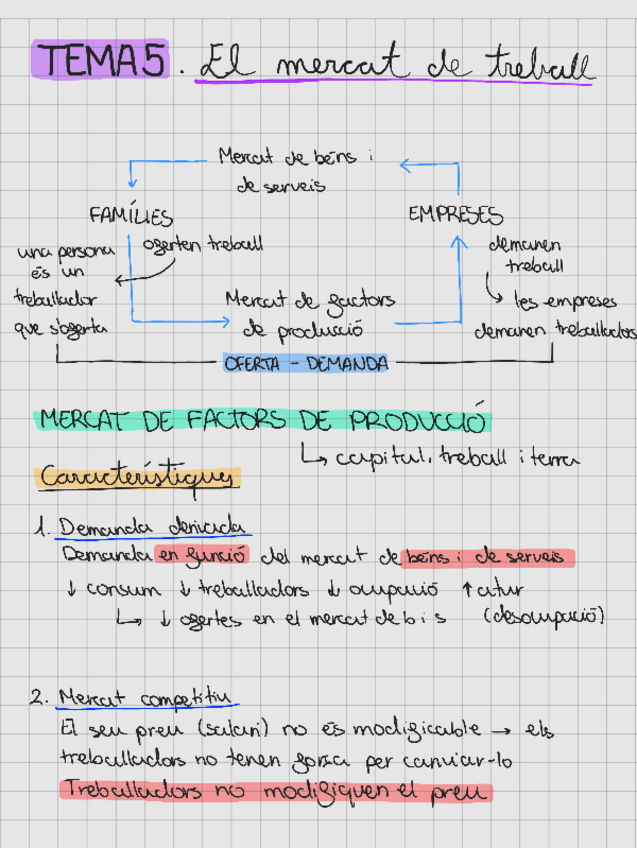 TEMA 5. El mercat de treball
Mercat de béns i
de serveis
FAMÍLIES
EMPRESES
ofereten treball
una persona
és un
treballador
que s'oferta
demanen
treball
les empreses
demanen treballadors
Mercat de factors
de producció
OFERTA - DEMANDA
MERCAT DE FACTORS DE PRODUCCIÓ
↳ capital, treball i terra
Característiques
1. Demanda derivada
Demanda en funció del mercat de béns i de serveis
↓ consum ↓ treballadors ↓ ocupació ↑ atur
↳ ↓ ofertes en el mercat de b i s (desocupació)
2. Mercat competitiu
El seu preu (salari) no és modificable → els
treballadors no tenen força per canviar-lo
Treballadors no modifiquen el preu